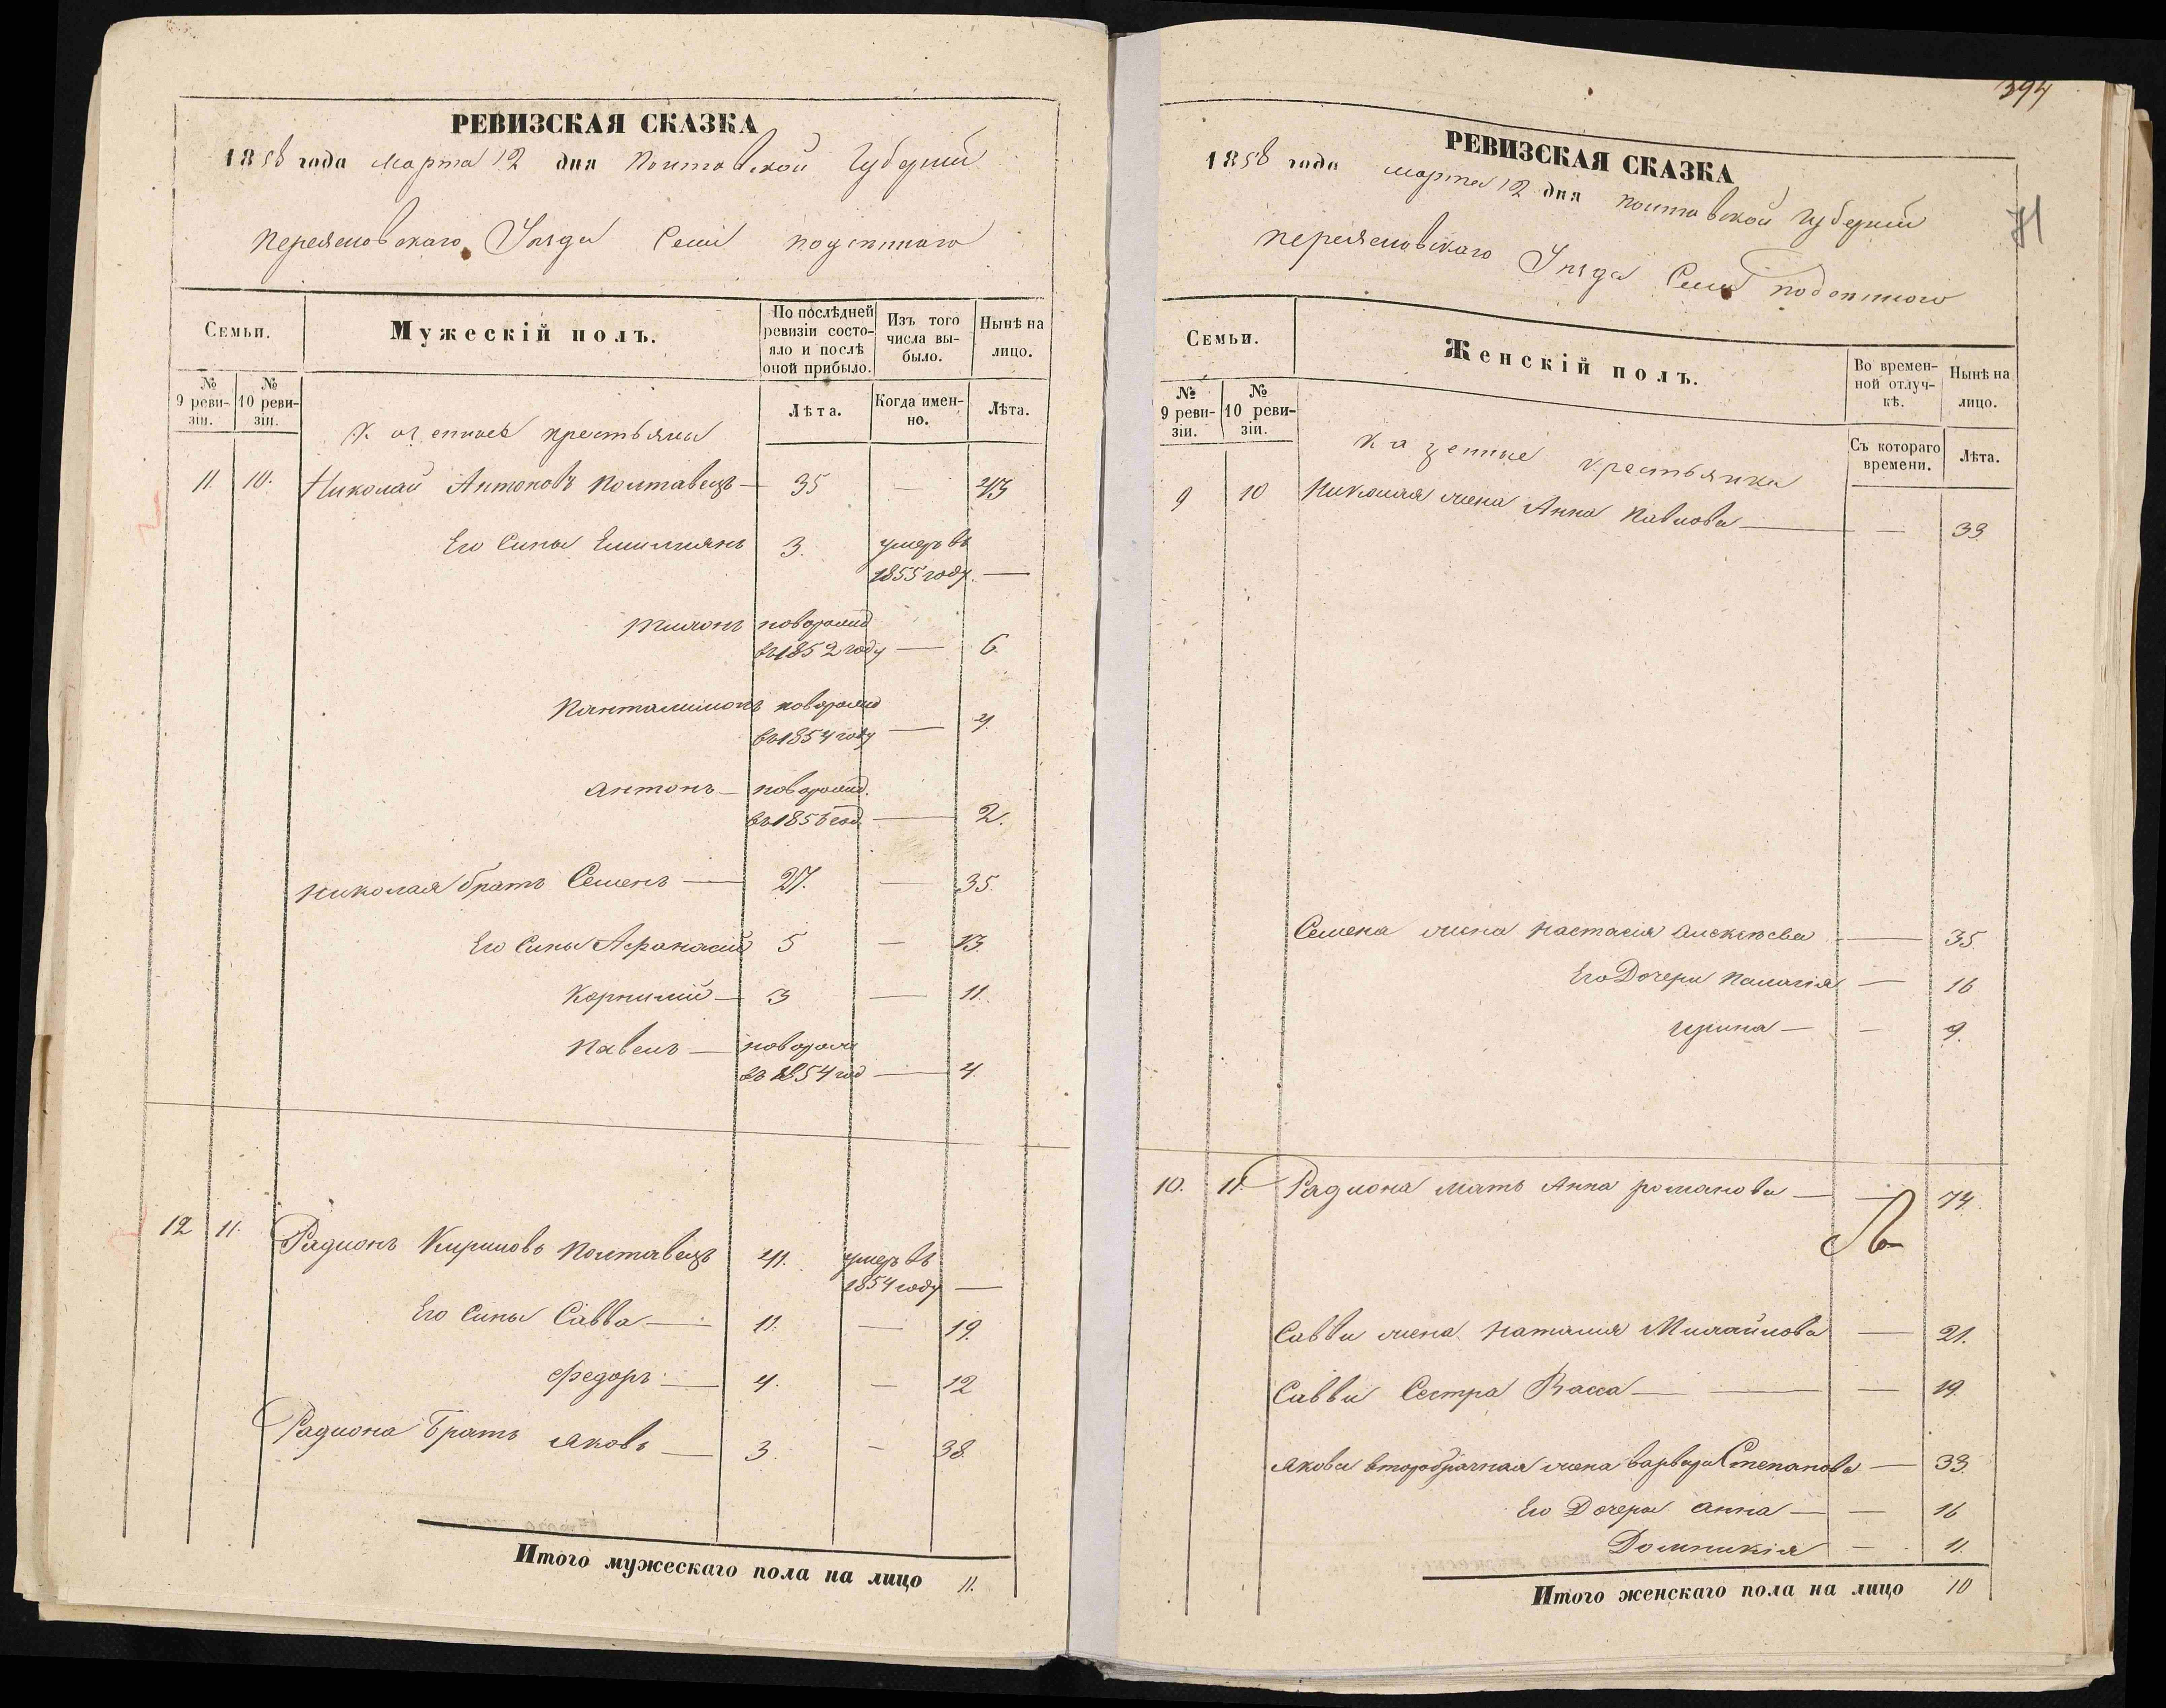 РЕВИЗСКАЯ СКАЗКА
1858 года марта 12 дня Полтавской Губерніи
переяславскаго Уезда Села
Семьи.
Мужескій полъ.
По послѣдней ревизіи состояло и послѣ оной прибыло.
Изъ того числа выбыло.
Нынѣ на лицо.
№ 9 ревизіи.
№ 10 ревизіи.
Лѣта.
Когда именно.
Лѣта.
крестьяне
11. 10. Николай Антоновъ Полтавецъ — 35 — 43
Его Сыны Емилиянъ 3. умеръ въ
1855 году. —
новорожд
въ 1852 году — 6.
Панталимонъ новорожд
въ 1854 году — 4.
антонъ — новорожд.
въ 1856 год. — 2.
николая братъ Семенъ — 27. — 35.
Его Сыны Афанасий 5 — 13.
Корнилий — 3 — 11.
Павелъ — новорож
въ 1854 год — 4.
12 11. Радионъ Кириловъ Полтавецъ 41. умеръ въ
1854 году —
Его Сыны Савва — 11. — 19.
Федоръ — 4. — 12
Радиона Братъ Яковъ — 3. — 38.
Итого мужескаго пола на лицо 11.
394
71
РЕВИЗСКАЯ СКАЗКА
1858 года марта 12 дня полтавской Губерніи
переяславскаго Уезда Села
Семьи.
Женскій полъ.
Во временной отлучкѣ.
Нынѣ на лицо.
№ 9 ревизіи.
№ 10 ревизіи.
Съ котораго времени.
Лѣта.
казенные крестьянки
9 10 Николая жена Анна Павлова — — 39
Семена жена настасия алексѣева — 35.
Его Дочери Палагія — 16
ирина — — 9.
10. 11. Радиона мать Анна романова — — 74.
Саввы жена Наталия Михайлова — 21.
Саввы Сестра Васса — — — 19.
якова второбрачная жена варвара Степанова — 33.
Его Дочери анна — — 16
Домникія — 11.
Итого женскаго пола на лицо 10